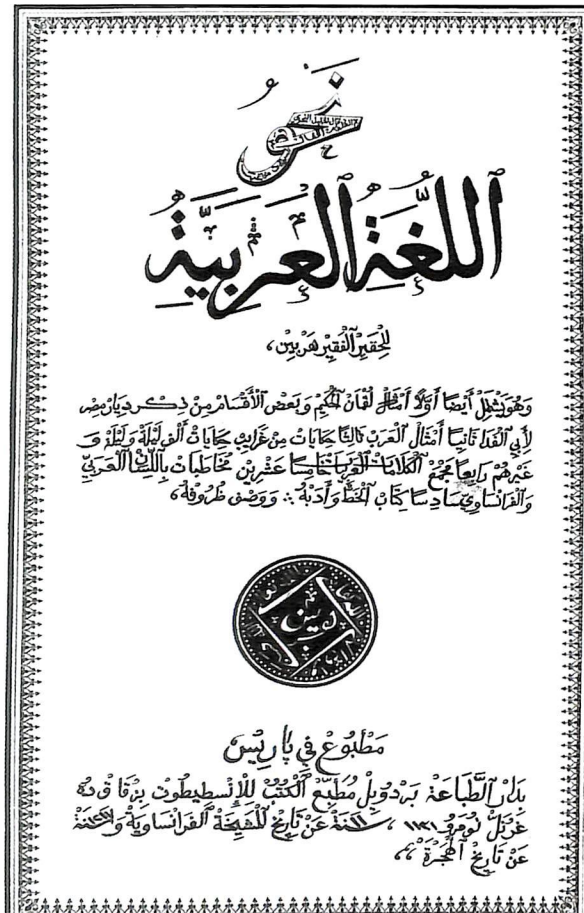 نحو
اَللُّغَةُ اَلْعَرَبِيَّةُ
لِلْحَقِيرِ اَلْفَقِيرِ هَرْبِين،
وَهُوَ يَشْمَلُ أَيْضًا أَوَّلًا أَمْثَالَ لُقْمَان اَلْحَكِيمِ وَبَعْضَ الْأَقْسَامِ مِنْ ذِكْر دِيَار مِصْر
لِأَبِي اَلْفِدَا ثَانِيًا أَمْثَالُ اَلْعَرَبِ ثَالِثًا حِكَايَات مِنْ غَرَايِبِ حِكَايَات أَلْفِ لَيْلَةً وَلَيْلَة وَ
غَيْرِهِمْ رَابِعًا مَجْمَعُ الْكَلَامَات الْعَرَبِيَّة خَامِسًا عَشْرِينَ مُخَاطَبَات بِاللِّسَانِ اَلْعَرَبِيّ
وَالْفَرَانْسَاوِيّ سَادِسًا كِتَابُ اَلْخَطِّ وَأَدَبُهُ ؞ وَوَصْف ظُرُوفِهُ،
مَطْبُوعْ فِي پَارِيسْ
بِدَارْ اَلطَّبَاعَةْ بَرْدُوِيلْ مُطَبِّعْ اَلْكُتُبْ لِلْإِنْسْطِيطُوتْ بِزُقَاقْ دُه
غْرَنَلْ نُومَرُو ١١٣١، عَنْ تَارِيخْ لِلْمَشِيخَةْ اَلْفَرَانْسَاوِيَةْ وَ
عَنْ تَارِيخْ اَلْهِجْرَةْ ،،